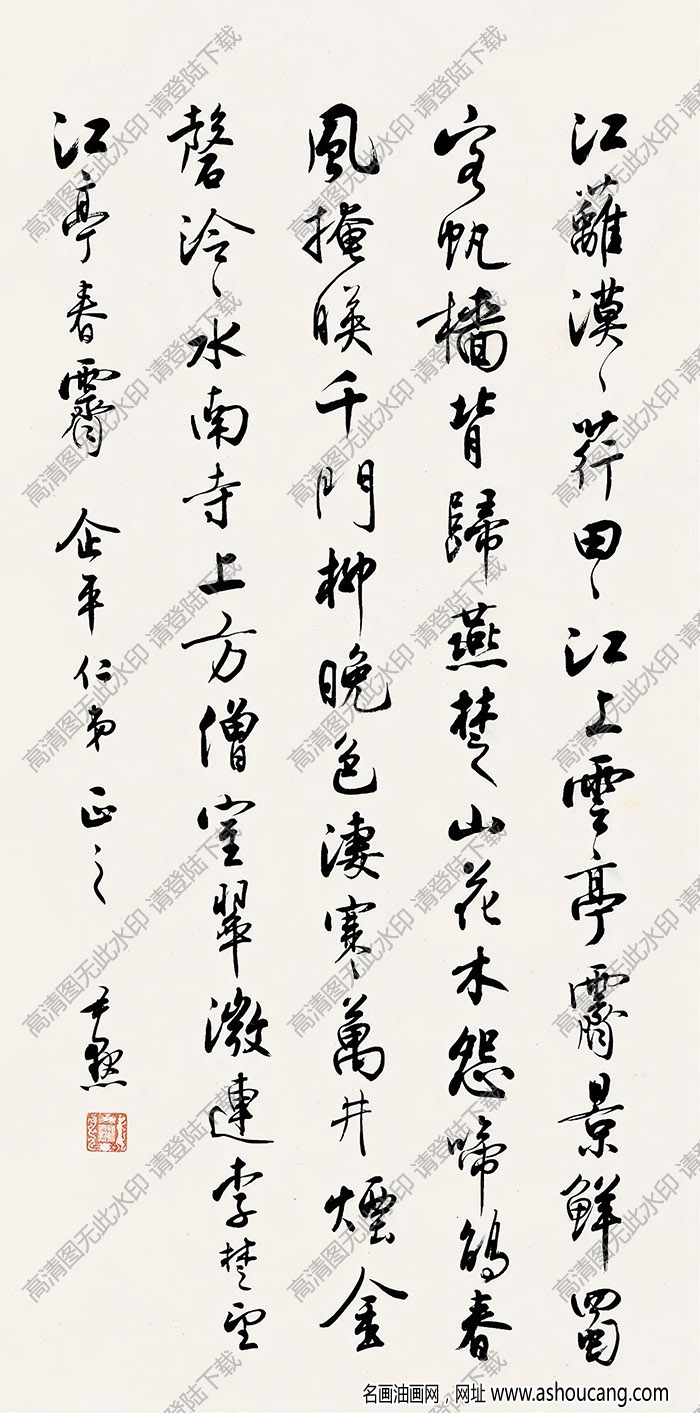 江蘺漠〻荇田〻江上雲亭霽景鮮蜀
客帆檣背歸燕楚山花木怨啼鵑春
風掩暎千門柳晚色淒寒萬井煙金
磬泠〻水南寺上方僧室翠微連李楚望
江亭春霽 企平仁弟正之 尹默
高清图无此水印 请登陆下载
名画油画网，网址 www.ashoucang.com